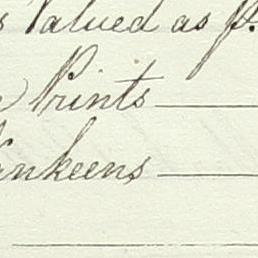 Valued as p.
Prints
ankeens